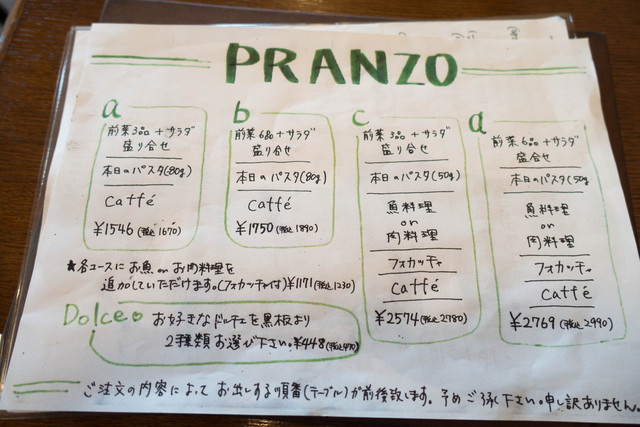 PRANZO
a
前菜3品+サラダ
盛り合せ
本日のパスタ(80g)
Caffé
¥1546(税込1670)
b
前菜6品+サラダ
盛り合せ
本日のパスタ(80g)
Caffé
¥1750(税込1890)
c
前菜3品+サラダ
盛り合せ
本日のパスタ(50g)
魚料理
or
肉料理
フォカッチャ
Caffé
¥2574(税込2780)
d
前菜6品+サラダ
盛り合せ
本日のパスタ(50g
魚料理
or
肉料理
フォカッチャ
Caffé
¥2769(税込2990)
★各コースにお魚orお肉料理を
追加していただけます。(フォカッチャ付)¥1171(税込1230)
Dolce♥ お好きなドルチェを黒板より
2種類お選び下さい。¥448(税込470)
ご注文の内容によってお出しする順番(テーブル)が前後致します。予めご了承下さい。申し訳ありません。